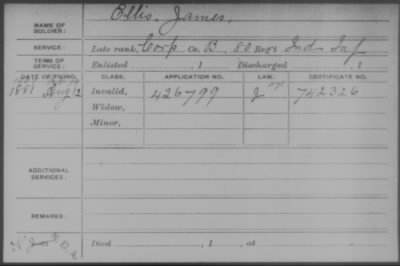 Ellis, James.
NAME OF SOLDIER:
SERVICE: Late rank, Corp Co. B, 80 Reg't Ind Inf
TERM OF SERVICE: Enlisted , 1 Discharged , 1
DATE OF FILING. CLASS. APPLICATION NO. LAW. CERTIFICATE NO.
1881 Aug 12 Invalid, 426799 742326
Widow,
Minor,
ADDITIONAL SERVICES:
REMARKS:
Died , 1 , at